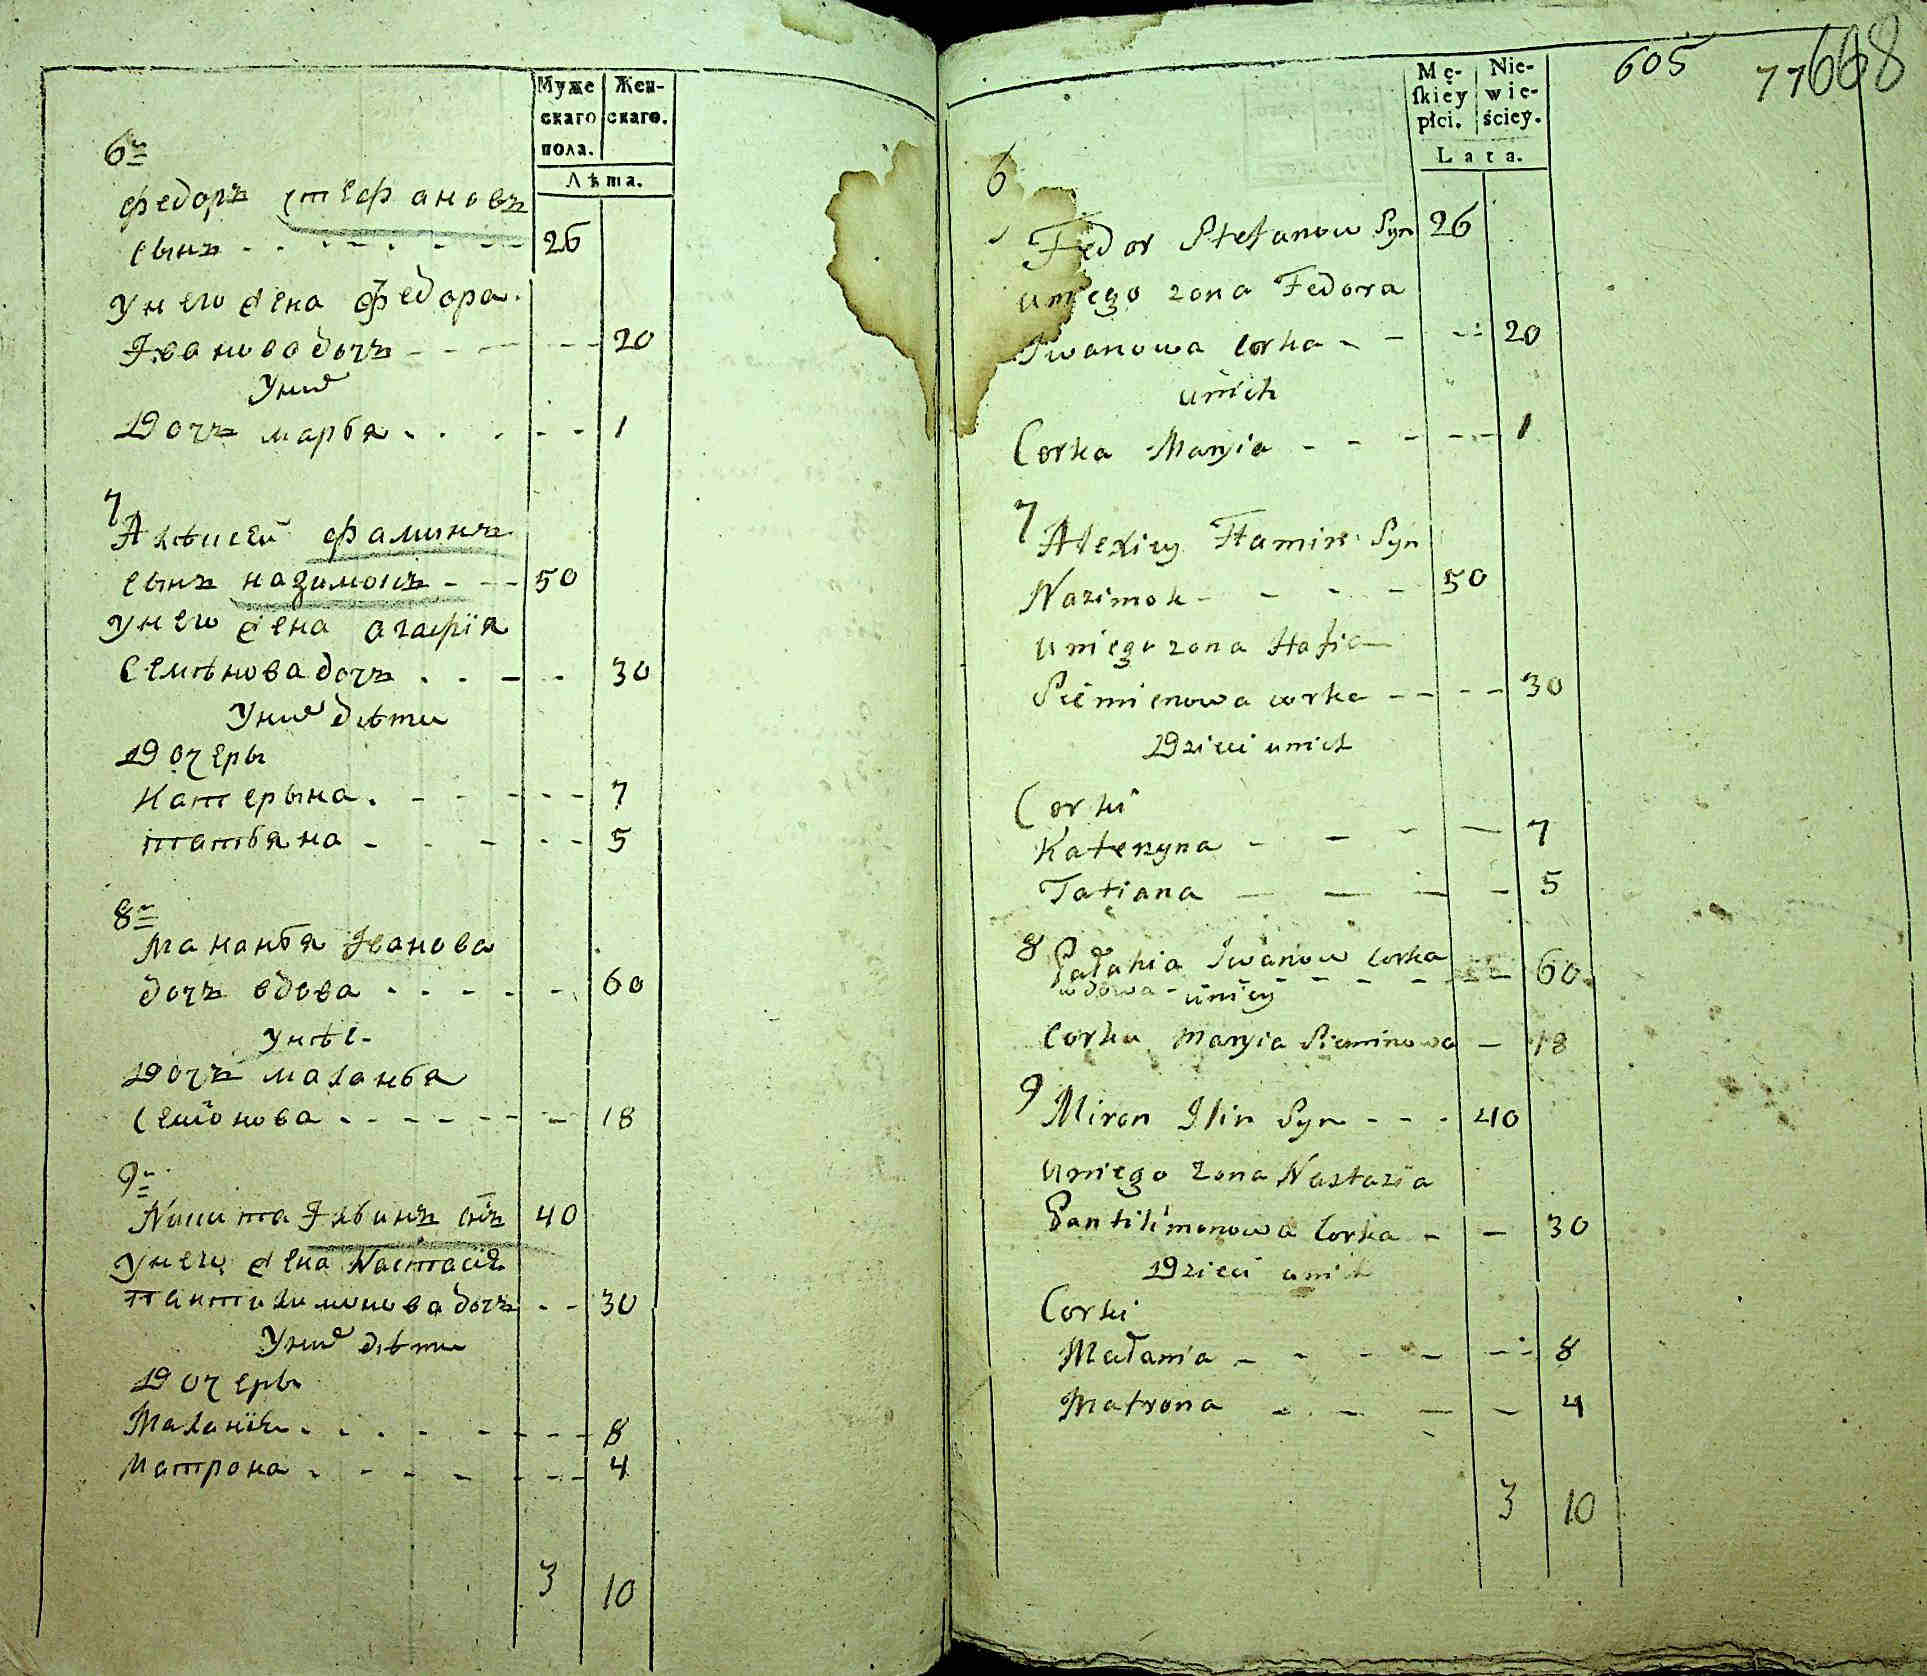 Муже скаго пола.
Жен- скаго.
Лѣта.
6й
федоръ стефановъ
сынъ - - - - - - 26
унего жена федора
Іванова дочь - - - - - 20
уних
Дочь марья - - - - - 1
7
Алѣксей фаминъ
сынъ назимокъ - - - 50
унего жена агафія
Семѣнова дочь - - - - 30
уних дѣти
Дочеры
Катерына - - - - - - 7
татьяна - - - - - - 5
8й
Маланья Іванова
дочь вдова - - - - - 60
унѣе
Дочь маланья
Семіонова - - - - - - 18
9й
Никита Ільинъ снъ 40
унего жена Настасія
пантилимонова дочь - - 30
уних дѣти
Дочеры
Маланія - - - - - - - 8
Матрона - - - - - - - 4
3 10
605
77
668
Mę- skiey płci.
Nie- wie- ściey.
Lata.
6
Fedor Stefanow Syn 26
uniego zona Fedora
Iwanowa Corka - - - - 20
unich
Corka Maryia - - - - - 1
7
Alexiey Hamin Syn
Nazimok - - - - 50
uniego zona Hafia
Siemienowa corka - - - - 30
Dzieci unich
Corki
Kateryna - - - - 7
Tatiana - - - - 5
8 Pałahia Iwanow Corka
wdowa - uniey - - - - - - 60
Corka Maryia Siemionowa - 18
9
Miron Ilin Syn - - - 40
uniego zona Nastazia
Pantilimonowa Corka - - 30
Dzieci unich
Corki
Małania - - - - - - 8
Matrona - - - - 4
3 10